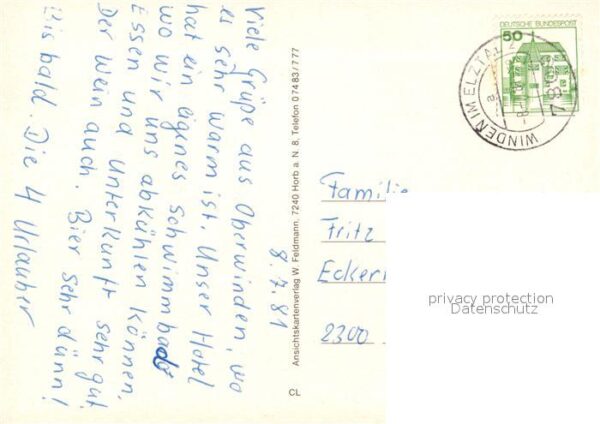 8.7.81
Viele Grüße aus Oberwinden, wo
es sehr warm ist. Unser Hotel
hat ein eigenes Schwimmbad
wo wir uns abkühlen können.
Essen und Unterkunft sehr gut,
Der Wein auch. Bier sehr dünn!
Bis bald. Die 4 Urlauber
Ansichtskartenverlag W. Feldmann, 7240 Horb a. N. 8, Telefon 07483/777
CL
DEUTSCHE BUNDESPOST
50
WINDEN IM ELZTAL
Familie
Fritz
Ecker
2300
privacy protection
Datenschutz